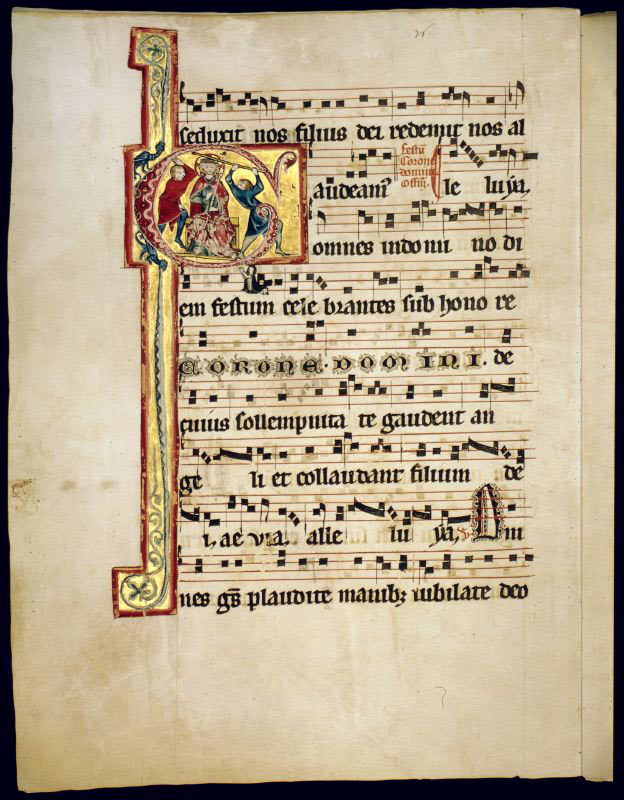 seduxit nos filius dei redemit nos al
festū
Corone
domini
le luya.
Gaudeamꝰ
omnes in domi no di
em festum cele brantes sub hono re
CORONE · DOMINI . de
cuius sollempnita te gaudent an
ge li et collaudant filium de
i, ae v ia, alle lu ya, Om
nes gēs plaudite manibꝫ iubilate deo